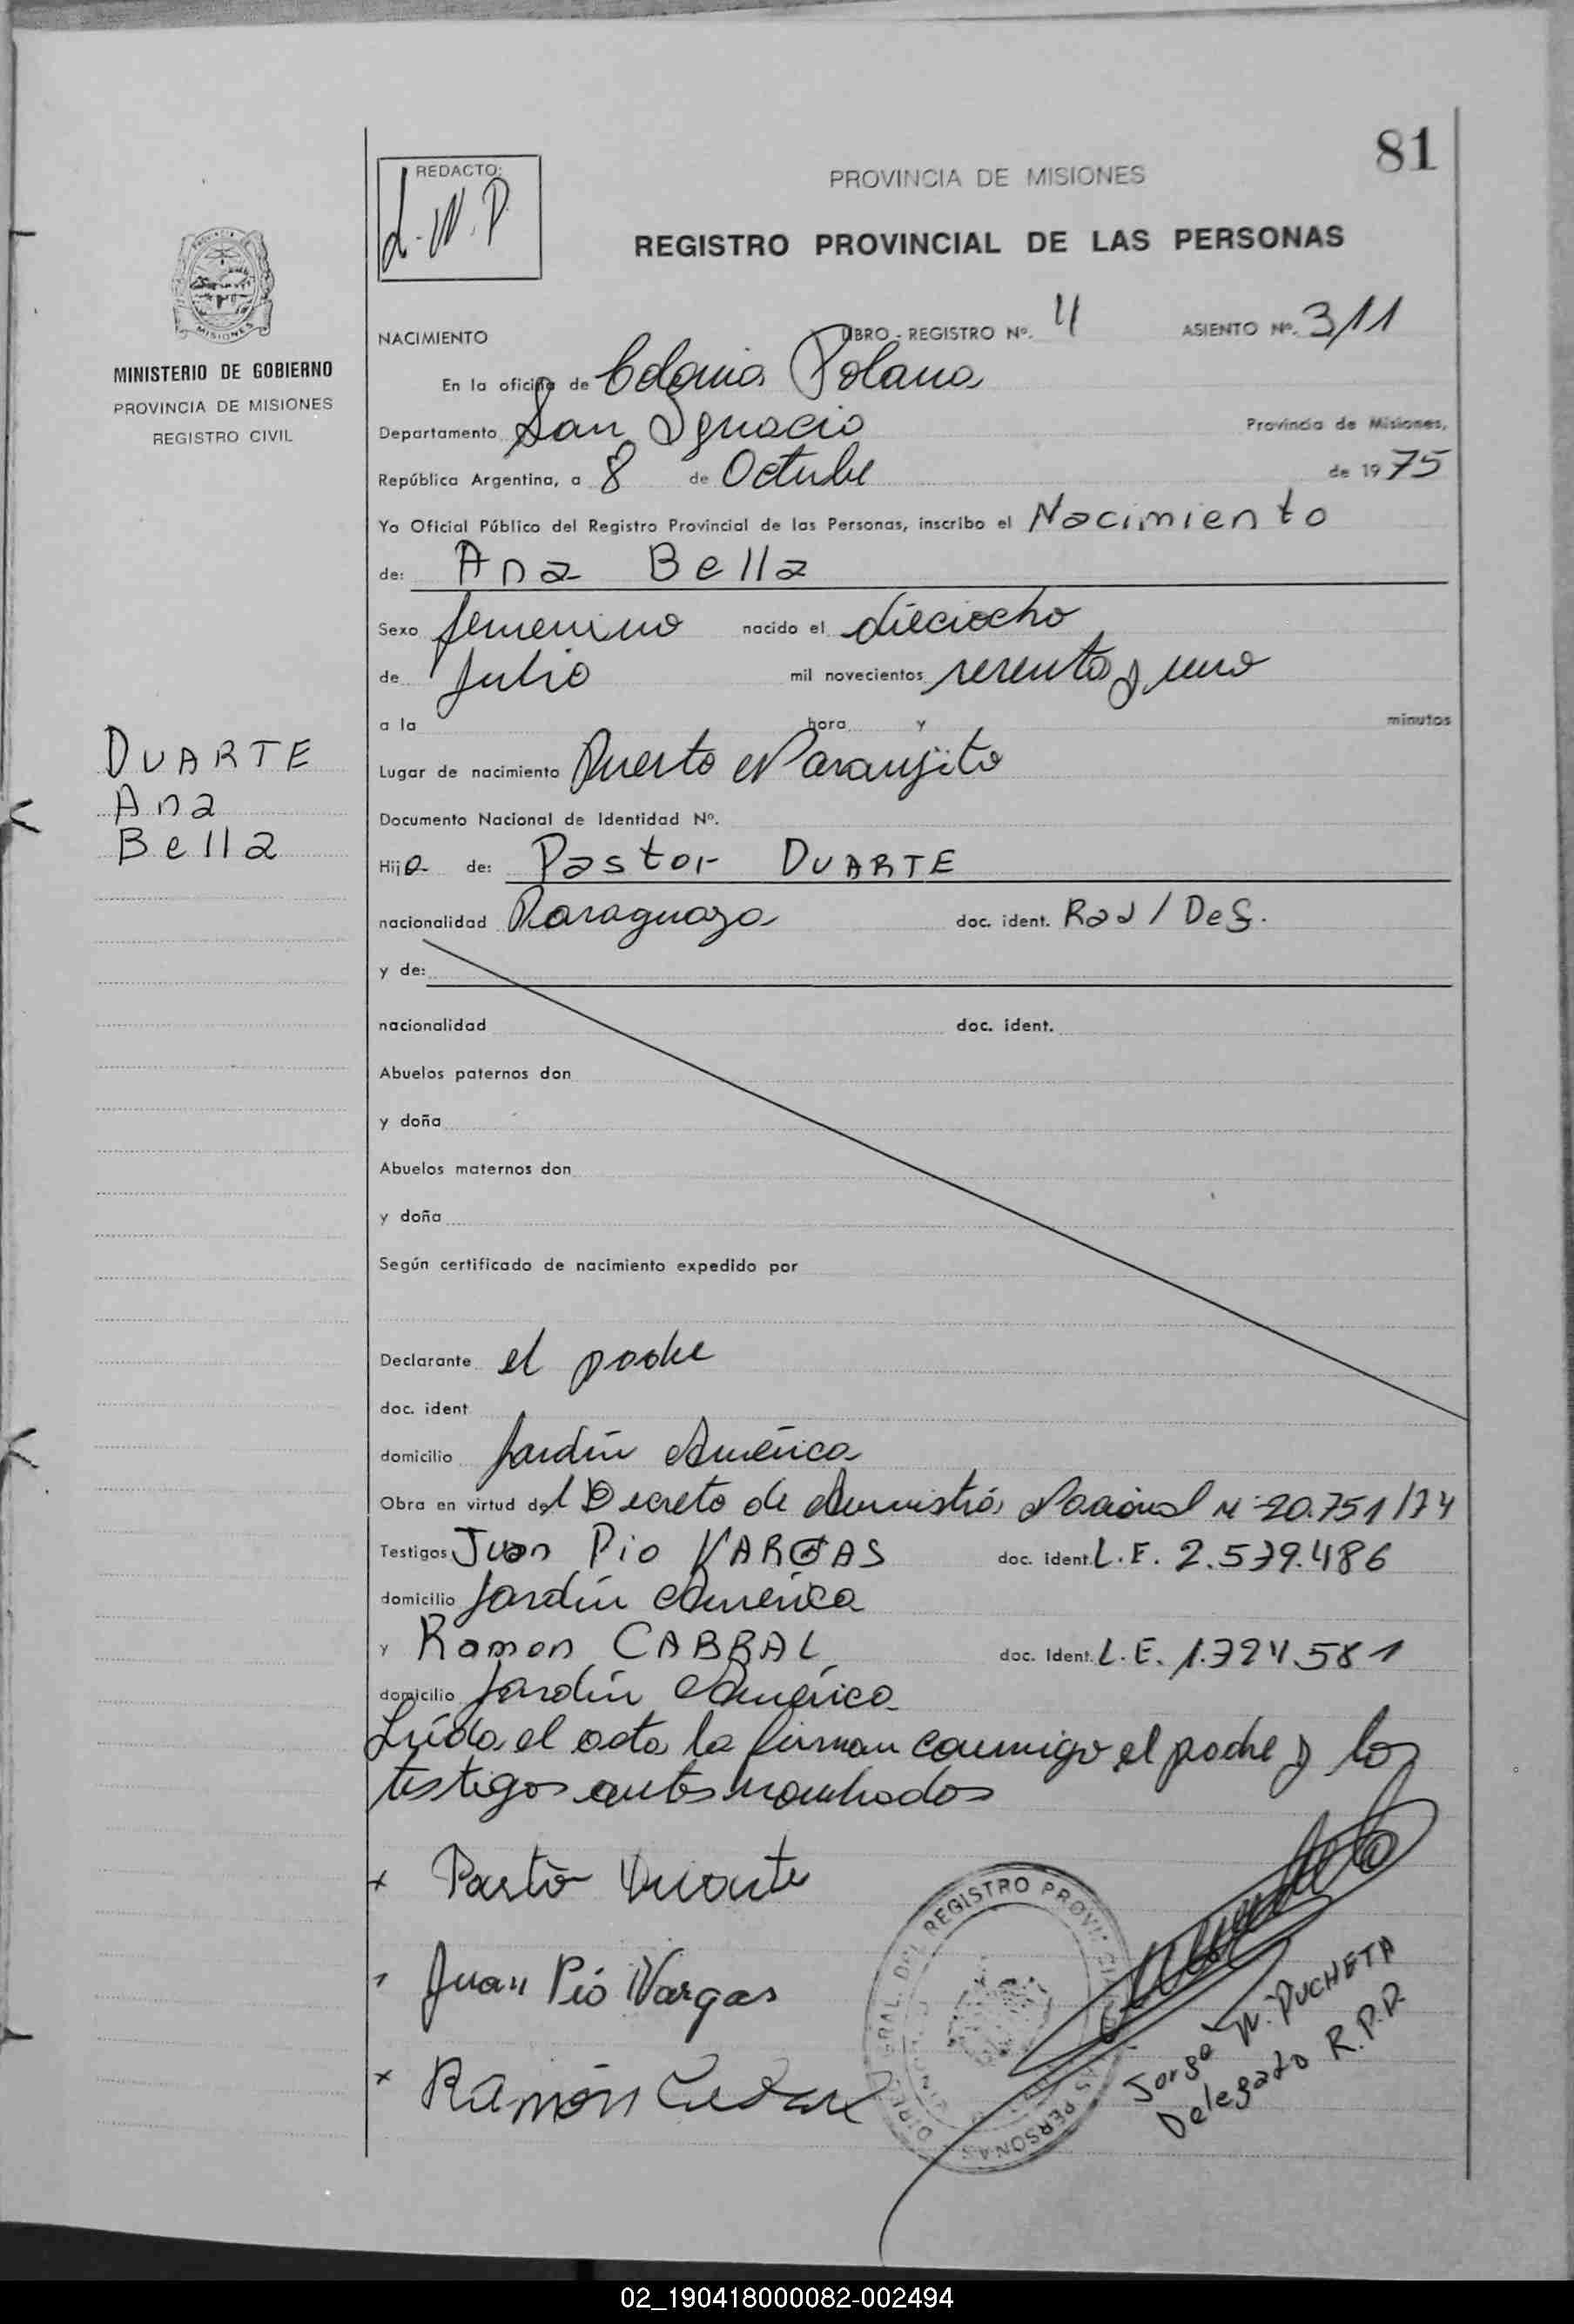 81
REDACTO:
L.N.P.
PROVINCIA DE MISIONES
REGISTRO PROVINCIAL DE LAS PERSONAS
MISIONES
MINISTERIO DE GOBIERNO
PROVINCIA DE MISIONES
REGISTRO CIVIL
NACIMIENTO LIBRO - REGISTRO Nº. 4 ASIENTO Nº. 311
En la oficina de Colonia Polana
Departamento San Ignacio Provincia de Misiones,
República Argentina, a 8 de Octubre de 1975
Yo Oficial Público del Registro Provincial de las Personas, inscribo el Nacimiento
de: Ana Bella
Sexo femenino nacido el dieciocho
de Julio mil novecientos sesenta y uno
a la hora y minutos
DUARTE
Ana
Bella
Lugar de nacimiento Puerto Naranjito
Documento Nacional de Identidad Nº.
Hija de: Pastor DUARTE
nacionalidad Paraguaya doc. ident. Rad / Def.
y de:
nacionalidad doc. ident.
Abuelos paternos don
y doña
Abuelos maternos don
y doña
Según certificado de nacimiento expedido por
Declarante el padre
doc. ident
domicilio Jardín América
Obra en virtud del Decreto de Amnistía Nacional Nº 20.751/74
Testigos Juan Pio VARGAS doc. ident. L.E. 2.579.486
domicilio Jardín América
y Ramon CABRAL doc. Ident. L.E. 1.724.581
domicilio Jardín América
Leída el acta la firman conmigo el padre y los
testigos antes nombrados
x Pastor Duarte
Juan Pió Vargas
x Ramón
REGISTRO PROVINCIAL
PERSONAS
Jorge N. PUCHETA
Delegado R.P.P.
02_190418000082-002494